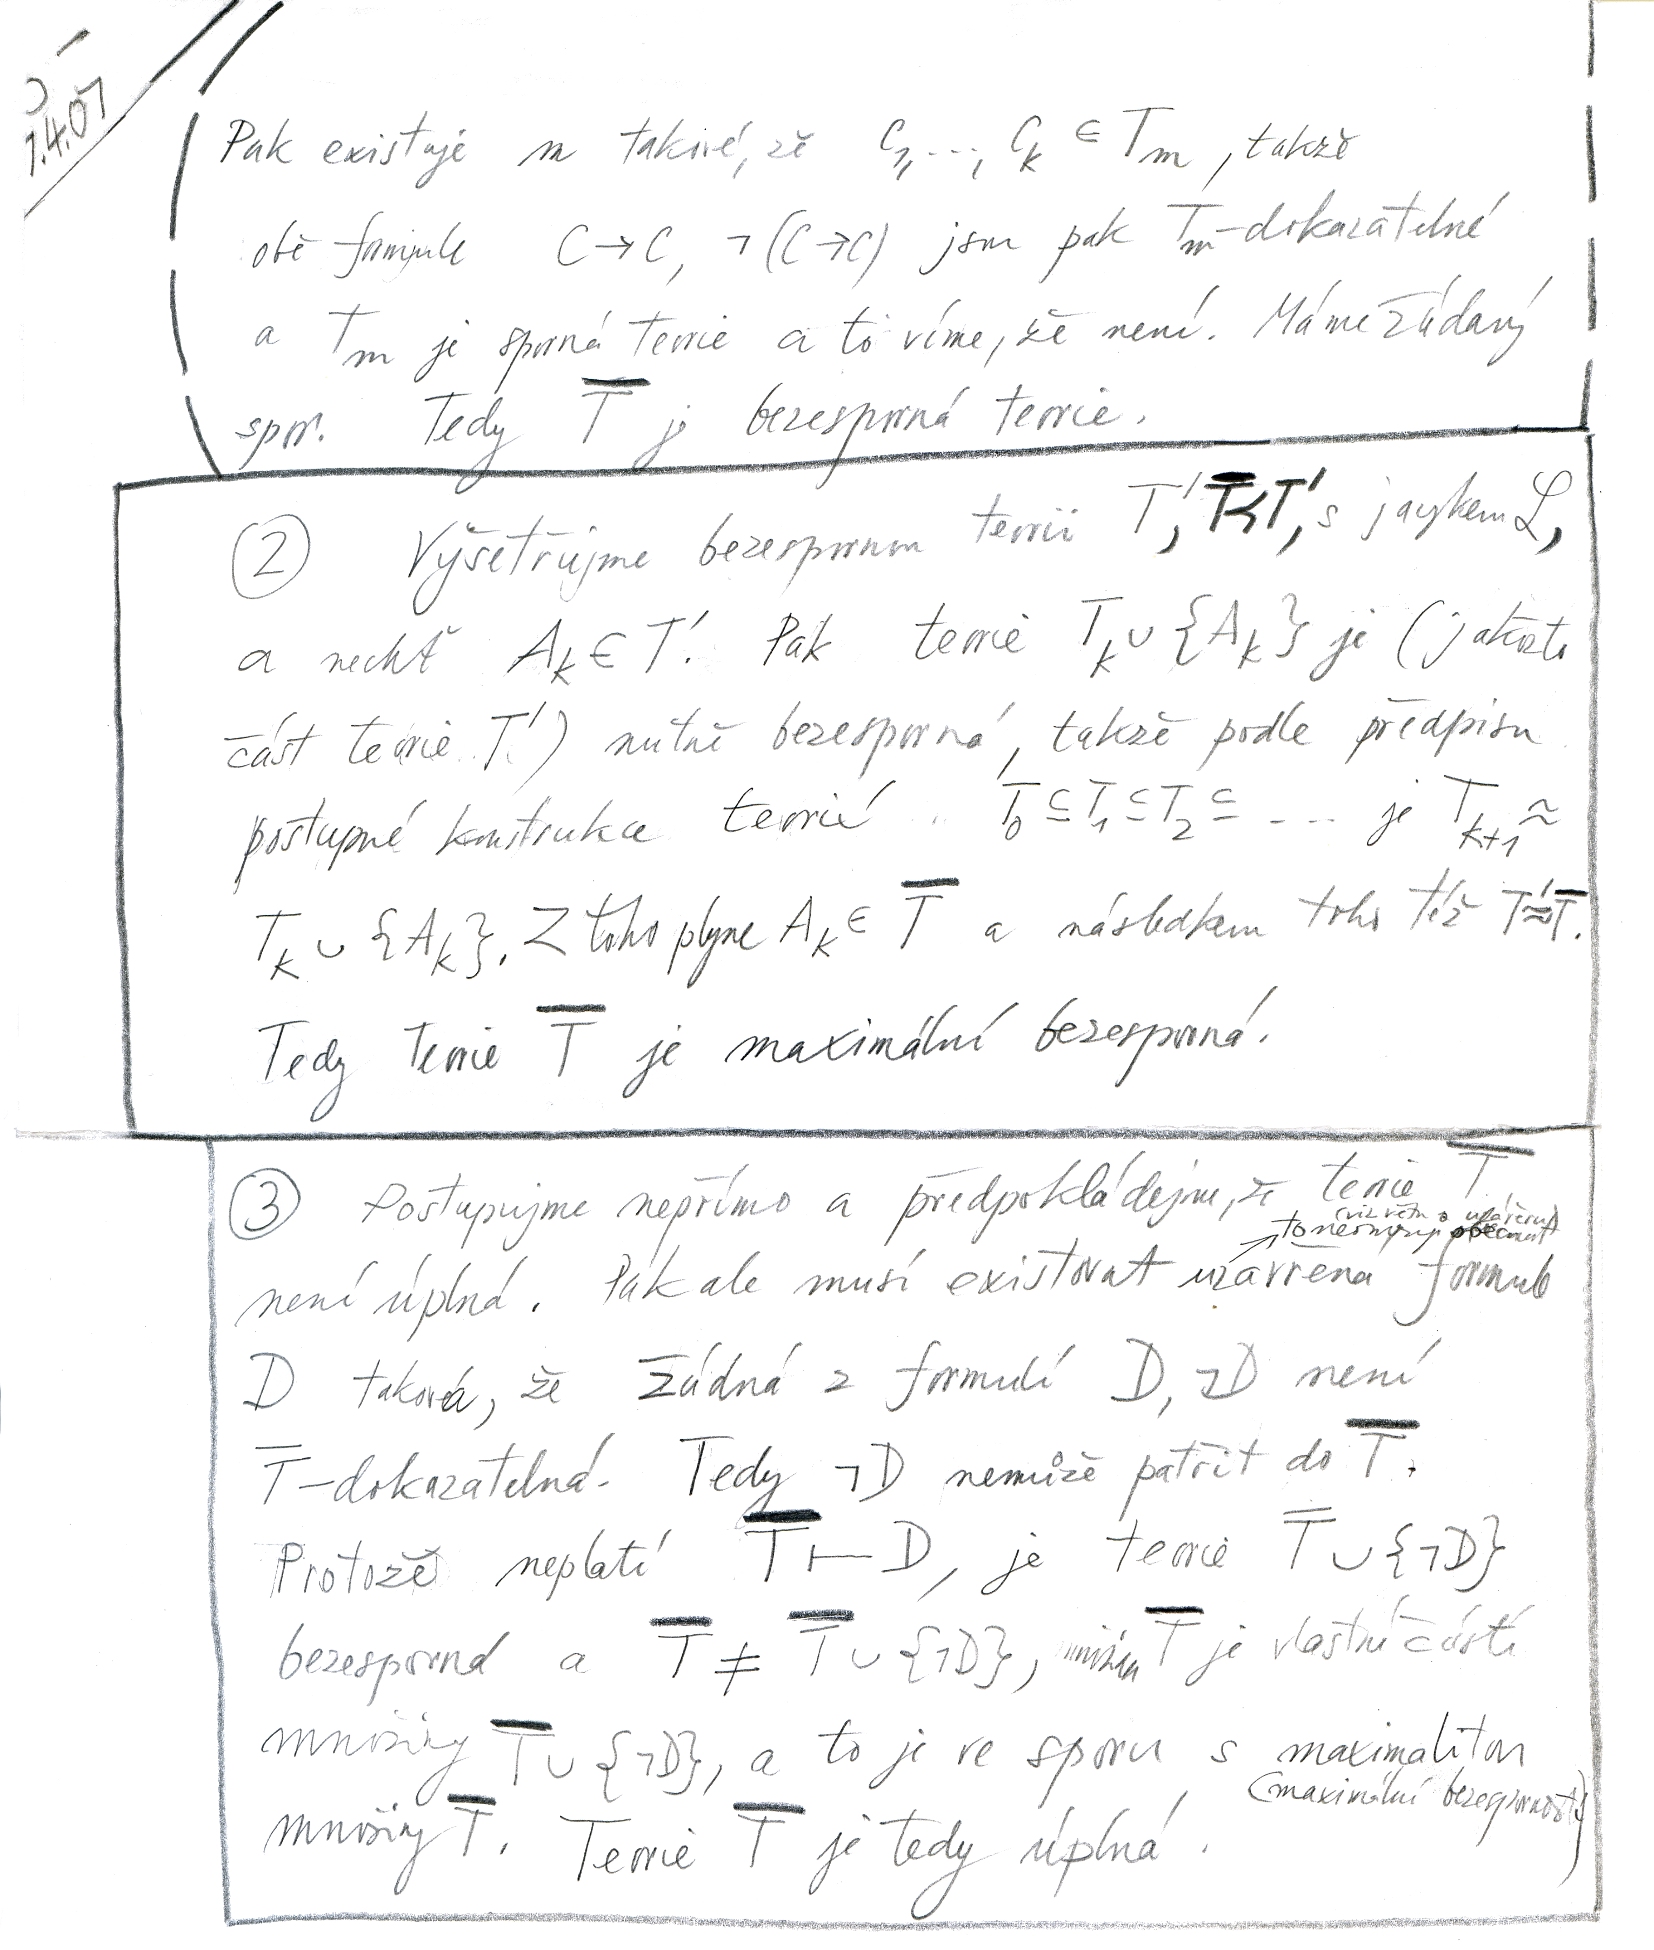 1.4.07
Pak existuje m takové, že C₁, ..., Cₖ ∈ Tₘ, takže
obě formule C→C, ¬(C→C) jsou pak Tₘ-dokazatelné
a Tₘ je sporná teorie a to víme, že není. Máme žádaný
spor. Tedy T̅ je bezesporná teorie.
② Vyšetřujme bezespornou teorii T', T̅≺T', s jazykem ℒ,
a nechť Aₖ∈T'. Pak teorie Tₖ∪{Aₖ} je (jakožto
část teorie T') nutně bezesporná, takže podle předpisu
postupné konstrukce teorií T₀⊆T₁⊆T₂⊆ ... je Tₖ₊₁≈
Tₖ∪{Aₖ}. Z toho plyne Aₖ∈ T̅ a následkem toho též T'≈T̅.
Tedy teorie T̅ je maximální bezesporná.
③ Postupujme nepřímo a předpokládejme, že teorie T̅
(viz větu o uzávěru)
není úplná. Pak ale musí existovat uzavřená formule
D taková, že žádná z formulí D, ¬D není
T̅-dokazatelná. Tedy ¬D nemůže patřit do T̅.
Protože neplatí T̅⊢D, je teorie T̅∪{¬D}
bezesporná a T̅ ≠ T̅∪{¬D}, množina T̅ je vlastní částí
množiny T̅∪{¬D}, a to je ve sporu s maximalitou
(maximální bezesporností)
množiny T̅. Teorie T̅ je tedy úplná.